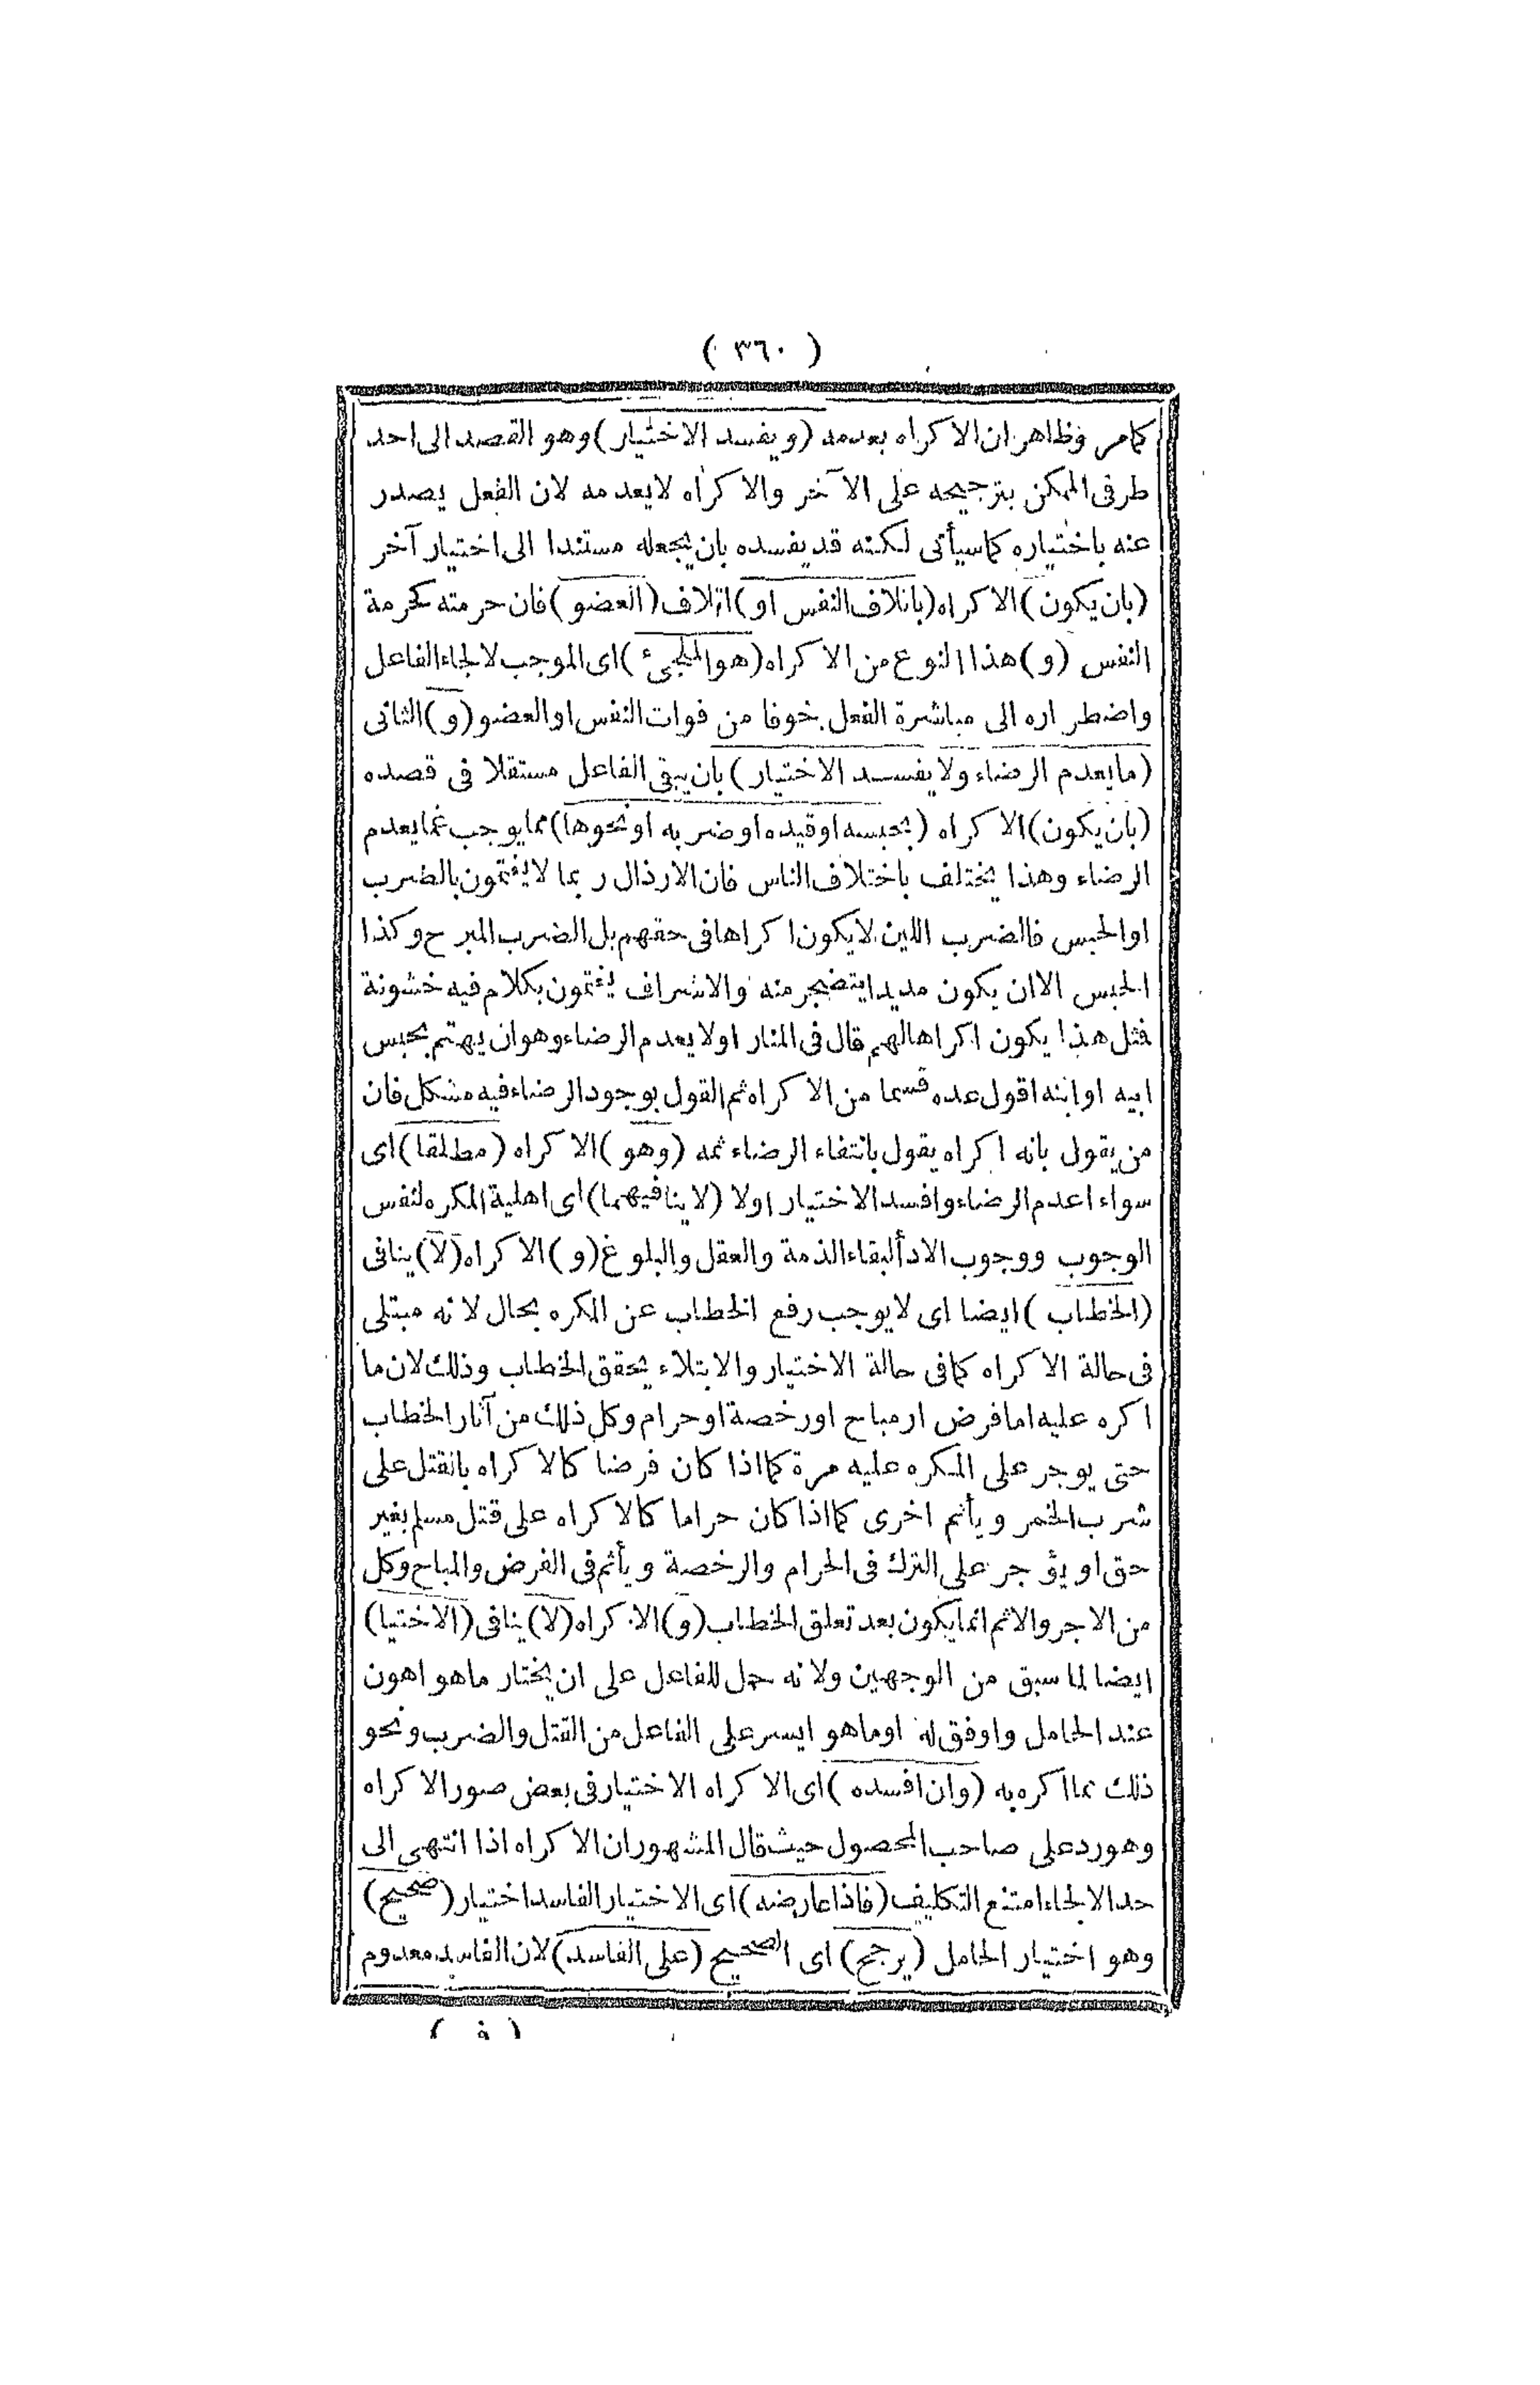 ( ٣٦٠ )
كمامر وظاهر ان الاكراه يعدمه (ويفسد الاختيار) وهو القصد الى احد
طرفى الممكن بترجيحه على الآخر والاكراه لايعدمه لان الفعل يصدر
عنه باختياره كماسيأتى لكنه قديفسده بان يجعله مستندا الى اختيار آخر
(بان يكون) الاكراه (باتلاف النفس او) اتلاف (العضو) فان حرمته كحرمة
النفس (و) هذا النوع من الاكراه (هو الملجئ) اى الموجب لالجاء الفاعل
واضطراره الى مباشرة الفعل خوفا من فوات النفس او العضو (و) الثانى
(مايعدم الرضاء ولايفسد الاختيار) بان يبقى الفاعل مستقلا فى قصده
(بان يكون) الاكراه (بحبسه اوقيده اوضربه اونحوها) مما يوجب غمايعدم
الرضاء وهذا يختلف باختلاف الناس فان الارذال ربما لايغتمون بالضرب
اوالحبس فالضرب اللين لايكون اكراها فى حقهم بل الضرب المبرح وكذا
الحبس الا ان يكون مديدا يتضجر منه والاشراف يغتمون بكلام فيه خشونة
فثل هذا يكون اكراها لهم قال فى المنار اولايعدم الرضاء وهوان يهتم بحبس
ابيه اوابنه اقول عده قسما من الاكراه ثم القول بوجود الرضاء فيه مشكل فان
من يقول بانه اكراه يقول بانتفاء الرضاء ثمه (وهو) الاكراه (مطلقا) اى
سواء اعدم الرضاء وافسد الاختيار اولا (لاينافيهما) اى اهلية المكره لنفس
الوجوب ووجوب الادأ لبقاء الذمة والعقل والبلوغ (و) الاكراه (لا) ينافى
(الخطاب) ايضا اى لايوجب رفع الخطاب عن المكره بحال لانه مبتلى
فى حالة الاكراه كمافى حالة الاختيار والابتلاء يحقق الخطاب وذلك لان ما
اكره عليه امافرض ارمباح اورخصة اوحرام وكل ذلك من آثار الخطاب
حتى يوجر على المكره عليه مرة كمااذا كان فرضا كالاكراه بالقتل على
شرب الخمر ويأثم اخرى كمااذا كان حراما كالاكراه على قتل مسلم بغير
حق اويؤجر على الترك فى الحرام والرخصة ويأثم فى الفرض والمباح وكل
من الاجر والاثم انمايكون بعد تعلق الخطاب (و) الاكراه (لا) ينافى (الاختيا)
ايضا لما سبق من الوجهين ولانه حمل للفاعل على ان يختار ماهو اهون
عند الحامل واوفق له اوماهو ايسر على الفاعل من القتل والضرب ونحو
ذلك مما اكره به (وان افسده) اى الاكراه الاختيار فى بعض صور الاكراه
وهورد على صاحب المحصول حيث قال المشهور ان الاكراه اذا انتهى الى
حد الالجاء امتنع التكليف (فاذا عارضه) اى الاختيار الفاسد اختيار (صحيح)
وهو اختيار الحامل (يرجح) اى الصحيح (على الفاسد) لان الفاسد معدوم